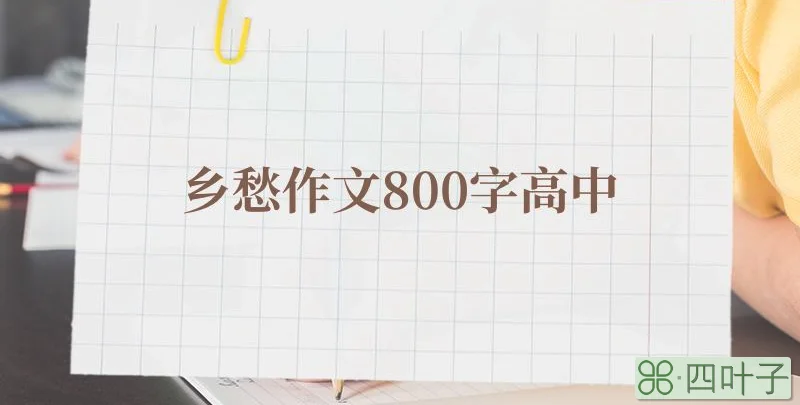 乡愁作文800字高中
四叶子